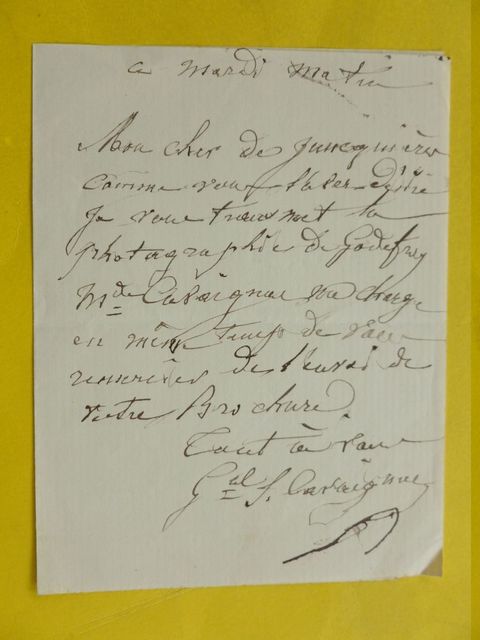 a mardi matin
Mon cher de Juncquières
comme vous l'avez désiré
Je vous transmet la
photographie de Godefroy
Mde Cavaignac me charge
en même temps de vous
remercier de l'envoi de
votre Brochure.
Tout à vous
Gal J. Cavaignac